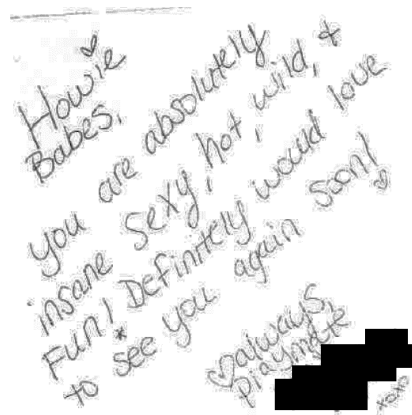 Howie
Babes,
you are absolutely
insane sexy, hot, wild, &
Fun! Definitely would love
to see you again soon!
always,
Playmate
xoxo